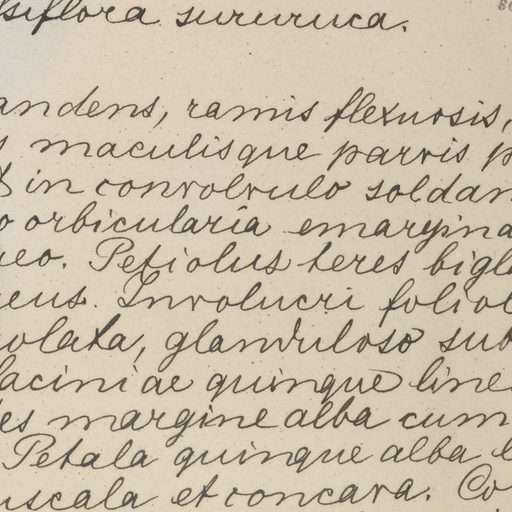 lsiflora sururuca.
andens, ramis flexuosis,
s maculisque parvis p
& in convolvulo soldan
o orbicularia emargina
neo. Petiolus teres bigla
eus. Involucri foliol
olata, glanduloso sub
laciniae quinque line
es margine alba cum
Petala quinque alba e
uscala et concava. Co